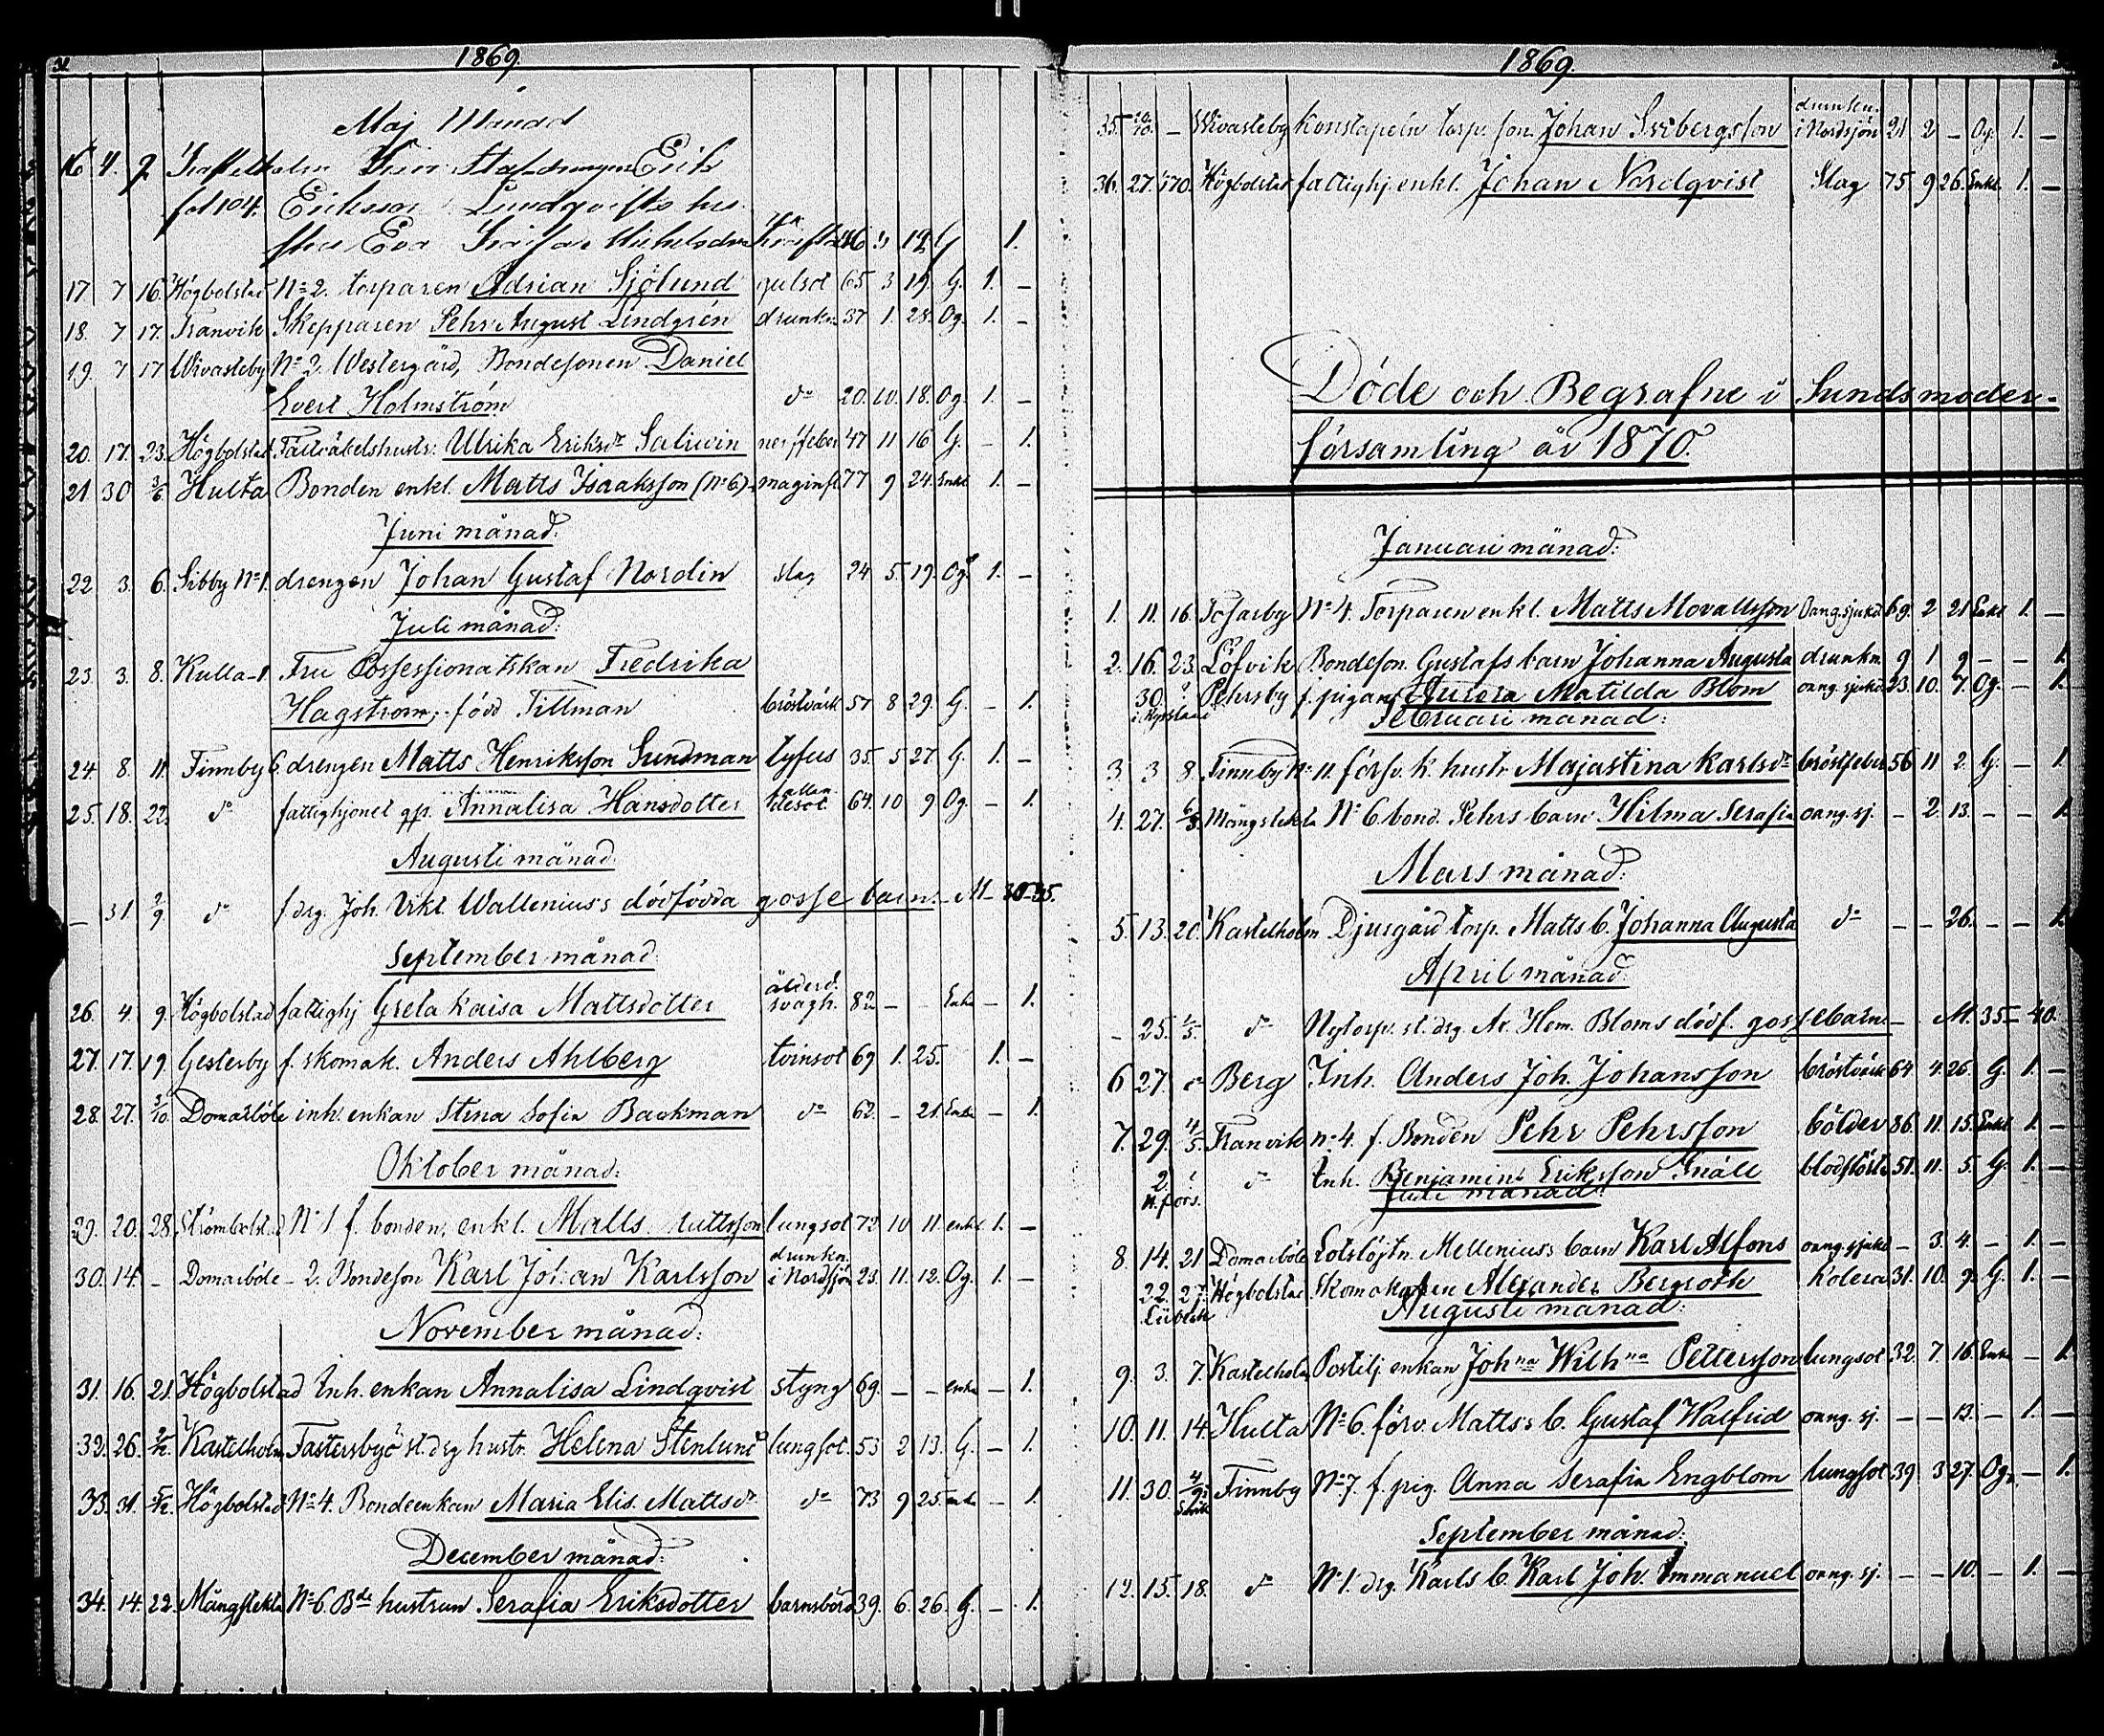 1869.
Maj Månad
16 4. 9 Kastelholm Erik
fol 104. Eriksson Lindqvists hu-
stru Eva Kajsa Michelsdr Kräfta 46 12 G 1.
17 7 16. Högbolstad No 2. torparen Adrian Sjölund gulsot 65 3 19. G. 1. –
18. 7 17. Tranvik Skepparen Pehr August Lindgrén drunkn. 37 1. 28. Og. 1. –
19. 7 17 Wivasteby No 2. Westergård, Bondesonen Daniel
Evert Holmström do 20. 10. 18. Og. 1. –
20. 17. 23. Högbolstad Ulrika Eriksdr Salivin nerffeber 47 11 16 G. – 1.
21 30 3/6 Hulta Bonden enkl. Matts Isaaksson (No 6) maginfl. 77 9 24. Enkl 1. –
Juni månad:
22. 3. 6. Sibby No 1. drengen Johan Gustaf Nordin slag 24 5. 19. Og. 1. –
Juli månad:
23. 3. 8. Kulla-1. Fru Possessionatskan Fredrika
Hagström, född Tillman bröstvärk 57 8 29. G. – 1.
24. 8. 11. Finnby 6. drengen Matts Henriksson Sundman tyfus 35. 5 27. G. 1. –
25. 18. 22. do fattighjonet gp. Annalisa Hansdotter fallandesot 64. 10 9 Og. – 1.
Augusti månad:
– 31. 2/9. do f. drg. Joh. Vikt. Wallenius's dödfödda gosse barn. – M – 30–35.
September månad:
26. 4. 9. Högbolstad fattighj Greta Kaisa Mattsdotter ålderd. svagh. 82 – – Enka – 1.
27. 17. 19. Gesterby f. skomak. Anders Ahlberg tvinsot 69 1. 25. 1. –
28. 27. 3/10. Domarböle inh. enkan Stina Sofia Backman do 62. – 21. Enka – 1.
Oktober månad:
29. 20. 28. Strömbolstad No 1 f. bonden, enkl. Matts Mattsson lungsot 72. 10 11. enkl 1. –
30. 14. – Domarböle – 2. Bondeson Karl Johan Karlsson drunkn. i Nordsjön 23. 11. 12. Og. 1. –
November månad:
31. 16. 21. Högbolstad Inh. enkan Annalisa Lindqvist styng 69. – – enka – 1.
32. 26. 5/12. Kastelholm Fastersbyö st. drg hustr. Helena Stenlund lungsot. 53 2 13. G. – 1.
33. 31. 5/12. Högbolstad No 4. Bondeenkan Maria Elis. Mattsdr do 73 9 25. enka – 1.
December månad:
34. 14. 22. Mångstekta No 6. Bde hustrun Serafia Eriksdotter barnsbörd 39. 6. 26. G. – 1.
1869.
35. 10/10. – Wivasteby Konstapeln torp. son Johan Isebergsson drunkn. i Nordsjön 21 2 – Og. 1. –
36. 27. 1/1 70. Högbolstad fattighj. enkl. Johan Nordqvist Slag 75 9 26. Enkl. 1. –
Döde och Begrafne i Sunds moder-
församling år 1870.
Januari månad:
1. 11. 16. Tosarby No 4. Torparen enkl. Matts Movallsson oang. sjukd 69. 2 21 Enkl 1. –
2. 16. 23. Löfvik Bondeson. Gustafs barn Johanna Augusta drunkn. 9 1 9 – – 1.
30. Pehrsby f. pigan Aurora Matilda Blom oang. sjukd 23. 10. 7. Og. – 1.
i Ryssland Februari månad:
3 3 8. Finnby No 11. förfv. k. hustr Majastina Karlsdr bröstfeber 56 11 2. G. – 1.
4. 27. 6/3. Mångstekta No 6. bond. Pehrs barn Hilma Serafia oang. sj. – 2. 13. – – 1.
Mars månad:
5. 13. 20. Kastelholm Djurgård torp. Matts b. Johanna Augusta do – – 26. – – 1.
April månad:
– 25. 1/5. do Nytorp. st. drg. Hem. Bloms dödf. gossebarn – M. 35–40.
6 27. Berg Inh. Anders Joh. Johansson bröstvärk 64 4. 26. G. 1. –
7. 29. 4/5. Tranvik n–4. f. Bonden Pehr Pehrsson bölder 86. 11. 15. Enkl 1. –
2. do Inh. Benjamin Eriksson Snäll blodstört. 51. 11. 5. G. 1. –
H.fors. Juli månad
8. 14. 21 Domarböle Lotslöjtn. Mellenius's barn Karl Alfons oang. sjukd – 3. 4. – 1. –
22. 27. Högbolstad Skomakaren Alexander Bergroth Kolera 31. 10. 9. G. 1. –
Lübeck Augusti månad:
9. 3. 7. Kastelholm Postilj. enkan Johna Wilhna Pettersson lungsot 32. 7. 16. Enka – 1.
10. 11. 14. Hulta No 6. förv. Matts's b. Gustaf Walfrid oang. sj. – – 13. – 1. –
11. 30. 4/9. Finnby No 7. f. pig. Anna Serafia Engblom lungsot 39. 3 27. Og. – 1.
September månad:
12. 15. 18. do No 1. drg. Karls b. Karl Joh. Immanuel oang. sj. – – 10. – 1. –